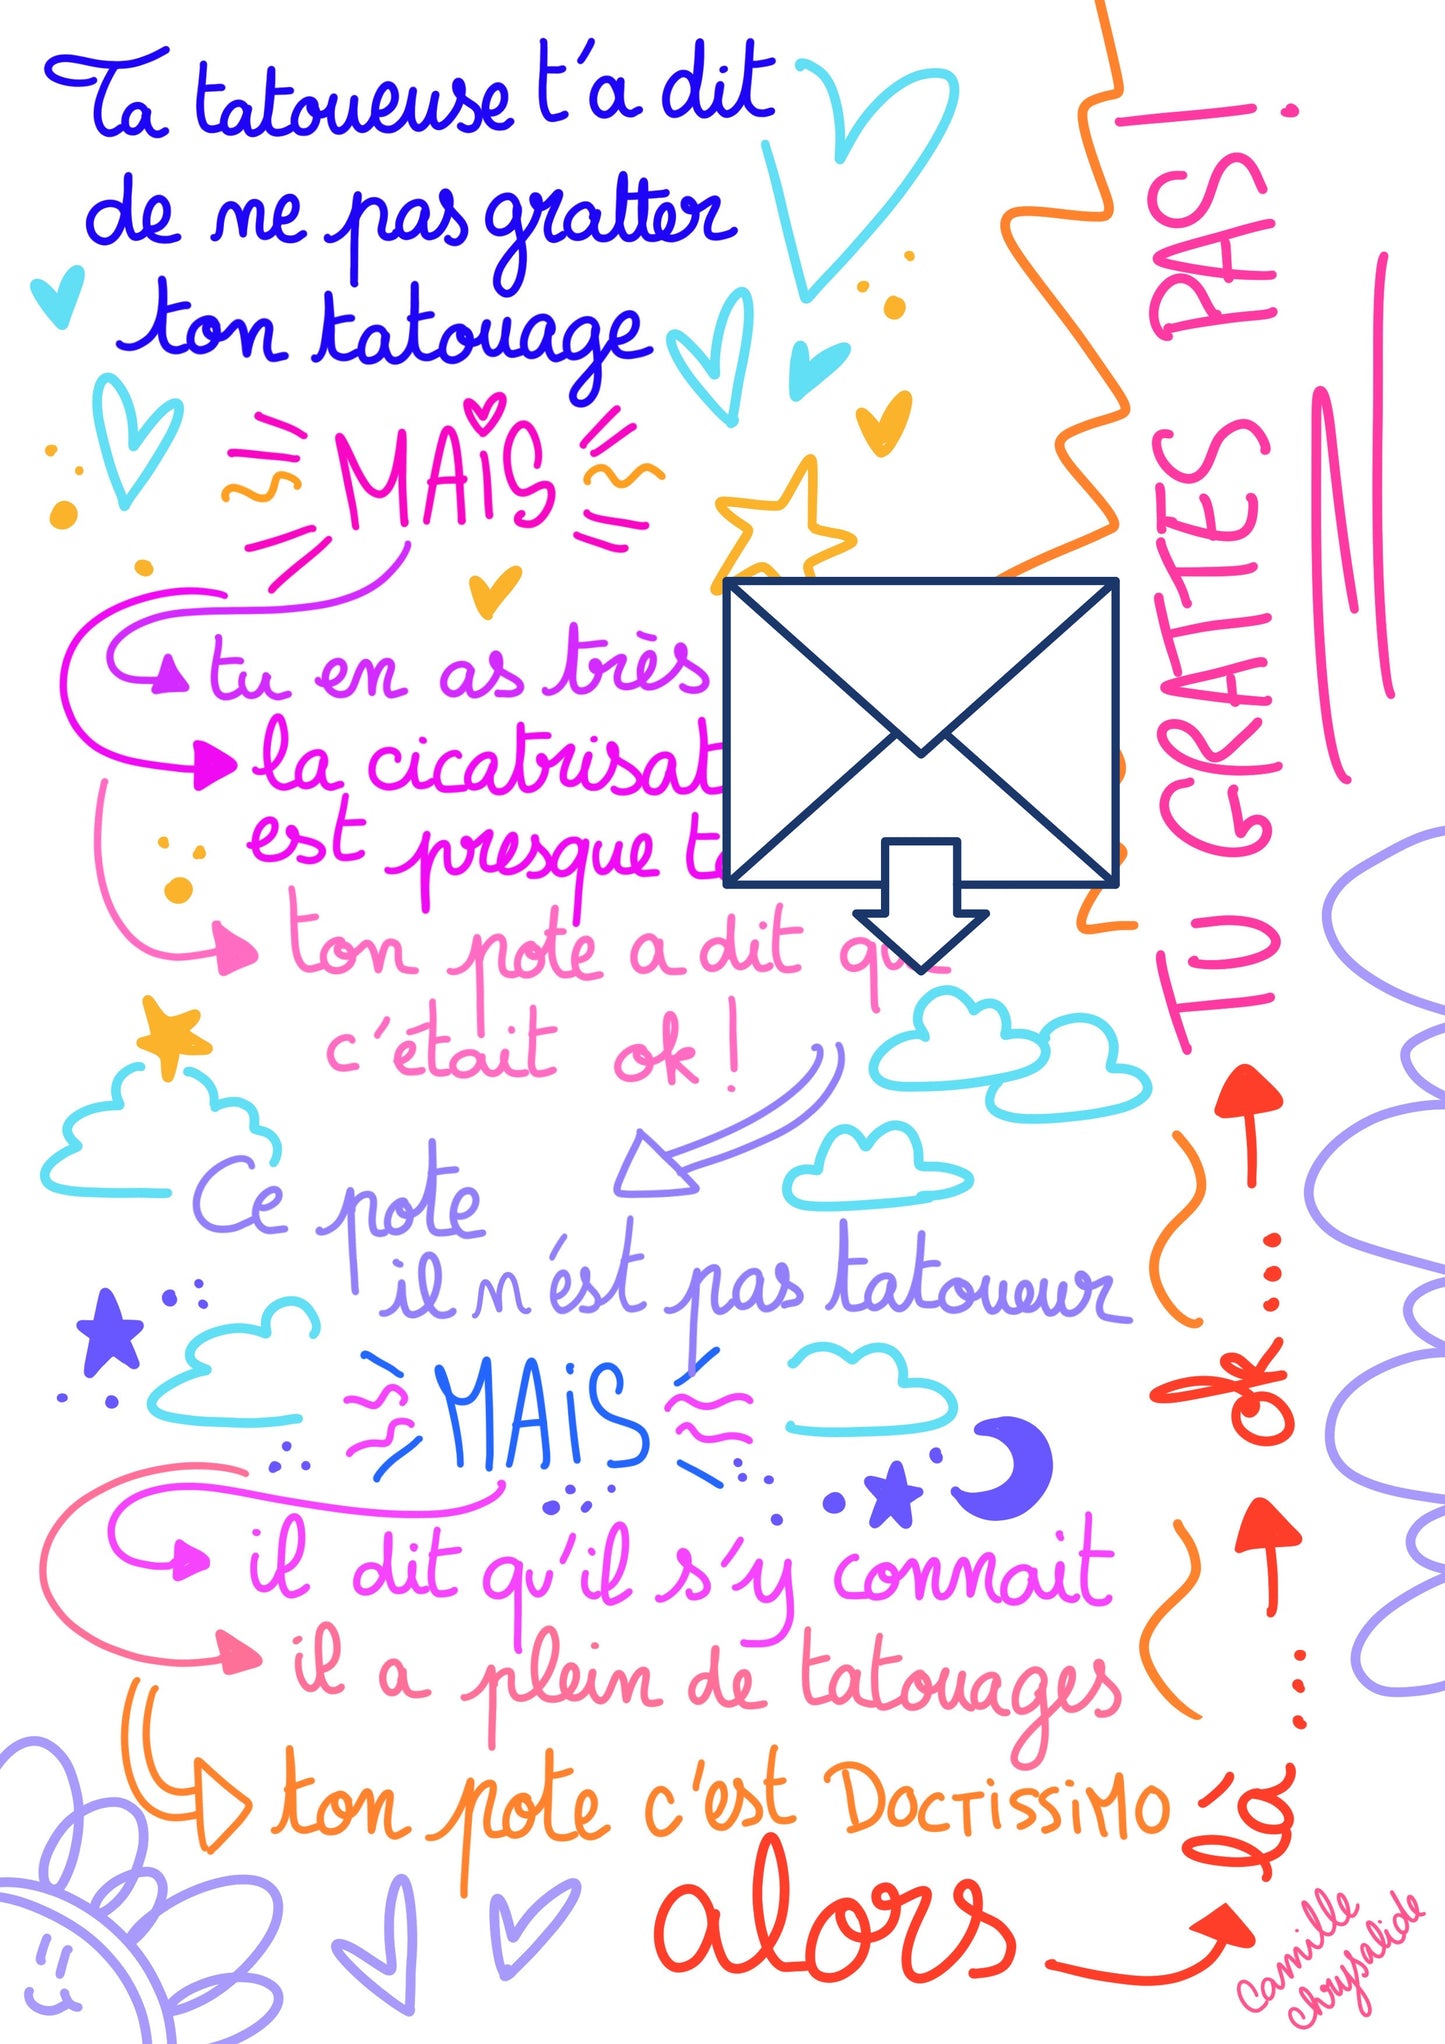 Ta tatoueuse t'a dit
de ne pas gratter
ton tatouage
MAiS
tu en as très
la
est presque
ton pote a dit que
c'était ok !
Ce pote
il n'ést pas tatoueur
MAiS
il dit qu'il s'y connait
il a plein de tatouages
ton pote c'est DOCTiSSiMO
alors
là ...
ok ...
TU GRATTES PAS !
Camille
chrysalide